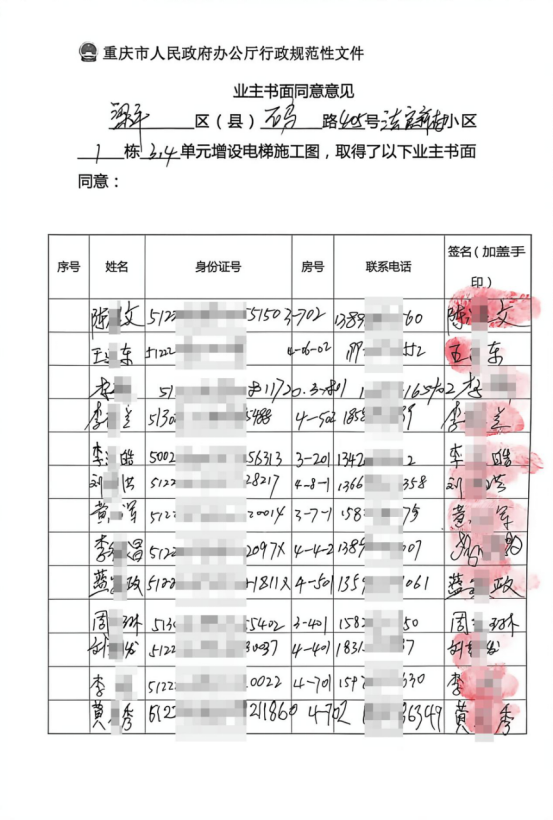 重庆市人民政府办公厅行政规范性文件
业主书面同意意见
梁平 区(县) 石码 路405号法官新村小区
1 栋 3,4 单元增设电梯施工图,取得了以下业主书面
同意:
序号 姓名 身份证号 房号 联系电话 签名(加盖手印)
陈 文 5122 5150 3-702 1389 60 陈 文
王 东 51222 4-06-02 552 王 东
李 51 3-801 李
李 兰 5130 5488 4-502 1858 39 李 兰
李 皓 5002 56313 3-201 1342 2 李 皓
刘 洪 5122 28217 4-8-1 1366 358 刘 洪
黄 军 5122 20014 3-7-1 158 75 黄 军
李 昌 5122 2097X 4-4-2 1389 007
蓝 政 5122 1811X 4-501 1359 061 蓝 政
周 琳 5130 55402 3-401 158 50 周 琳
刘 发 5122 30037 4-401 1831 37 刘 发
李 5122 20022 4-701 159 630 李
黄 秀 5122 211860 4-702 1 36349 黄 秀